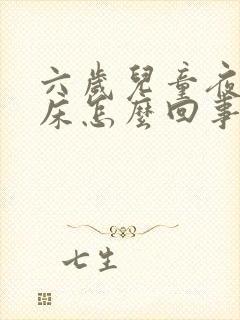 六歲兒童夜
床怎麼回事
七生